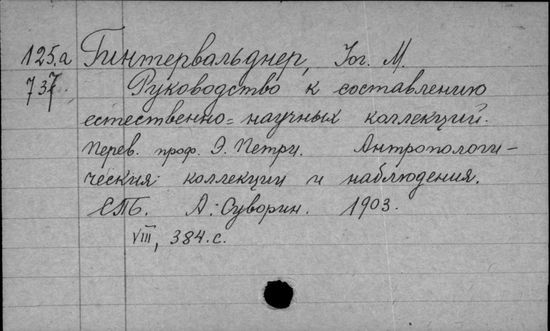 125.а Гинтервальднер, Іог. М.
737. Руководство к составлению
естественно=научных коллекций.
Перев. проф. Э. Петри. Антропологи-
ческия коллекции и наблюдения.
СПБ. А. Суворин. 1903.
VIII, 384.с.